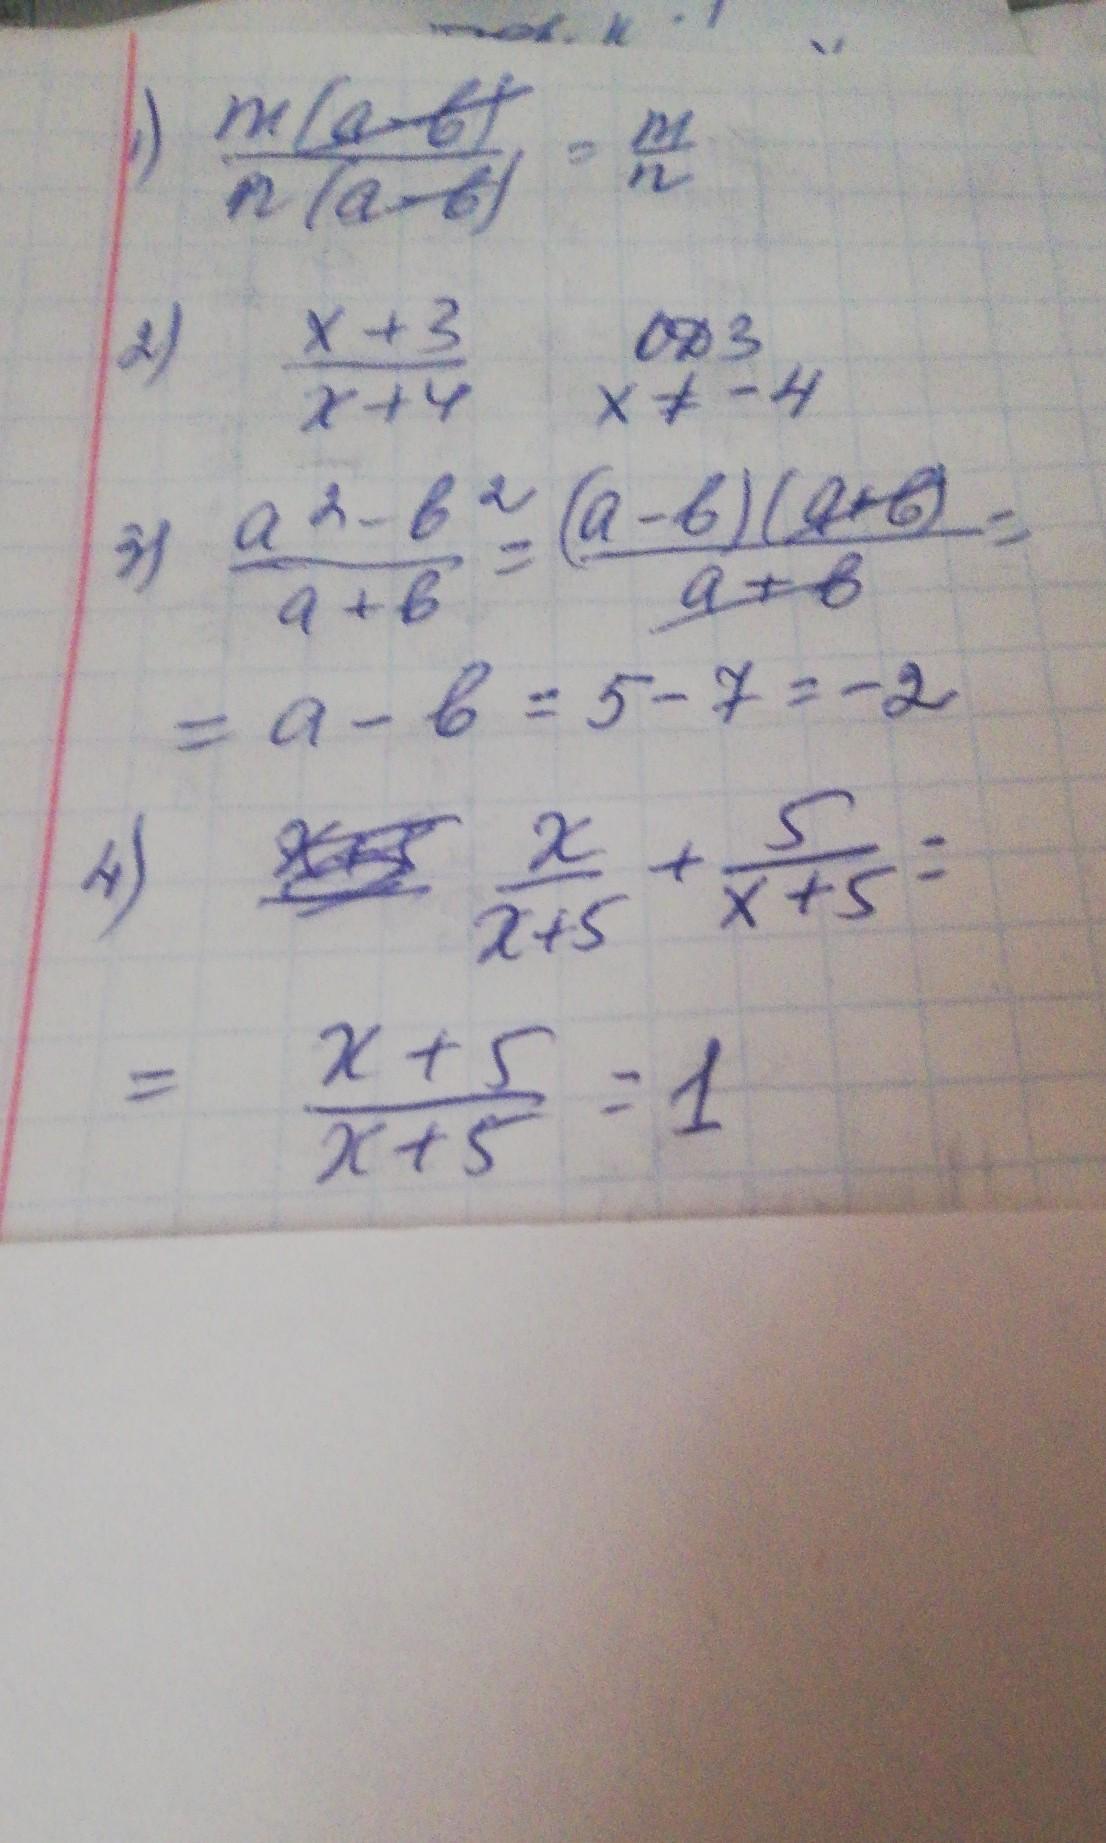 1) m(a-b) / n(a-b) = m/n
2) x+3 / x+4 ОДЗ
x ≠ -4
3) a²-b² / a+b = (a-b)(a+b) / a+b =
= a-b = 5-7 = -2
4) x / x+5 + 5 / x+5 =
= x+5 / x+5 = 1